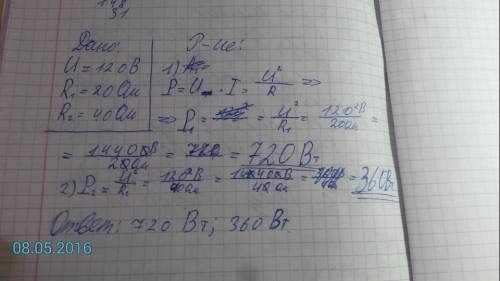 148
31
Дано:
U = 120В
R₁ = 20Ом
R₂ = 40Ом
Р-ие:
1)
P = U · I = U²/R =>
=> P₁ = = U²/R₁ = 120²В/20Ом =
= 14400В/20Ом = = 720Вт
2) P₂ = U²/R₁ = 120²В/40Ом = 14400В/40Ом = = 360Вт
Ответ: 720 Вт; 360 Вт.
08.05.2016